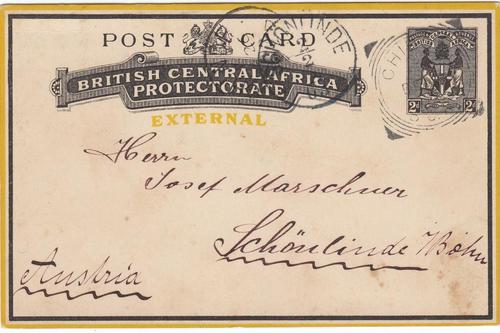 POST CARD
BRITISH CENTRAL AFRICA
PROTECTORATE
EXTERNAL
2d
Herrn
Josef Marschner
Schönlinde Böhm
Austria